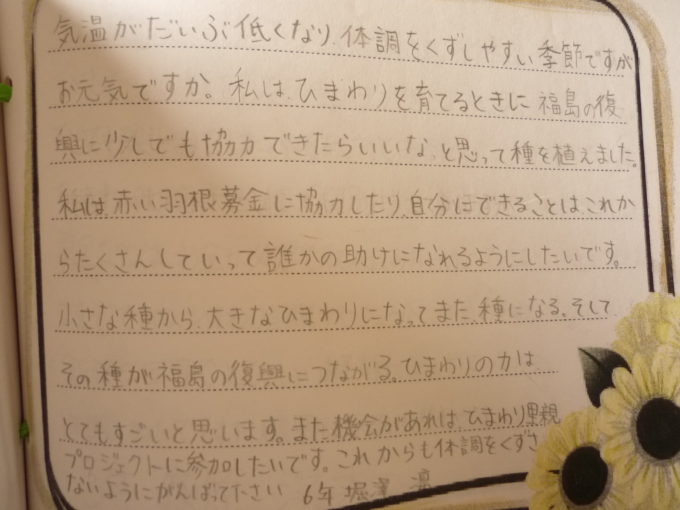 気温がだいぶ低くなり、体調をくずしやすい季節ですが
お元気ですか。私は、ひまわりを育てるときに福島の復
興に少しでも協力できたらいいな、と思って種を植えました。
私は、赤い羽根募金に協力したり、自分にできることは、これか
らたくさんしていって誰かの助けになれるようにしたいです。
小さな種から、大きなひまわりになってまた、種になる。そして
その種が福島の復興につながる。ひまわりの力は
とてもすごいと思います。また機会があれば、ひまわり里親
プロジェクトに参加したいです。これからも体調をくずさ
ないようにがんばって下さい 6年 堀澤 凛